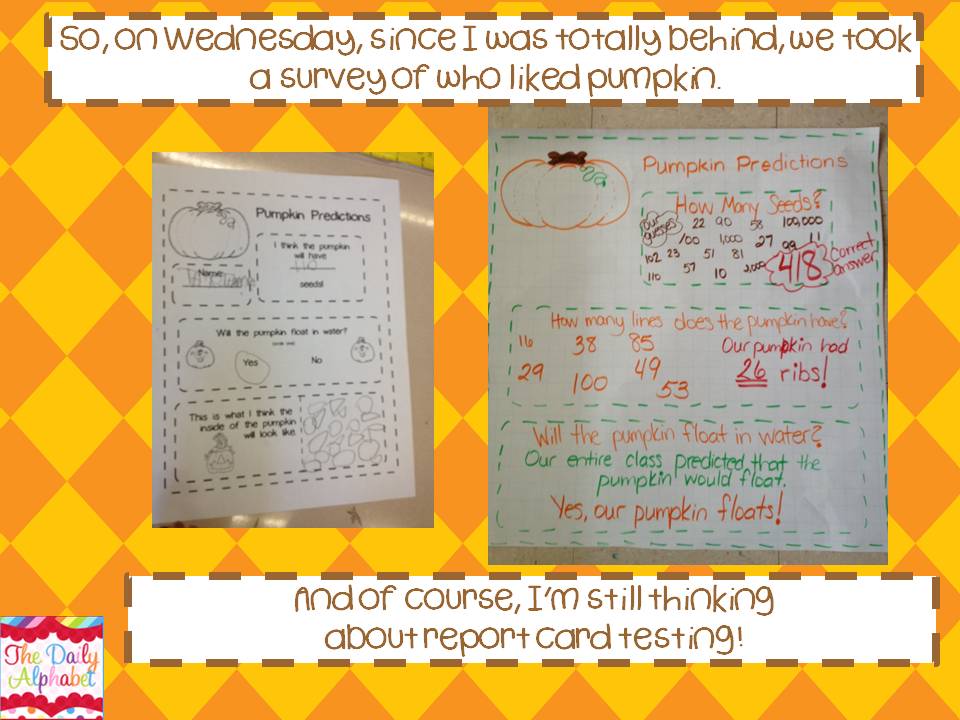 So, on Wednesday, since I was totally behind, we took
a survey of who liked pumpkin.
Pumpkin Predictions
I think the pumpkin
will have
110
seeds!
Name:
Will the pumpkin float in water?
(circle one)
Yes
No
This is what I think the
inside of the pumpkin
will look like.
Pumpkin Predictions
How Many Seeds?
our guesses
22 90 58 100,000
100 1,000 27 99 11
102 23 51 81
110 57 10 2,000
418
correct
answer
How many lines does the pumpkin have?
16 38 85
29 100 49
53
Our pumpkin had
26 ribs!
Will the pumpkin float in water?
Our entire class predicted that the
pumpkin would float.
Yes, our pumpkin floats!
And of course, I'm still thinking
about report card testing!
The Daily
Alphabet